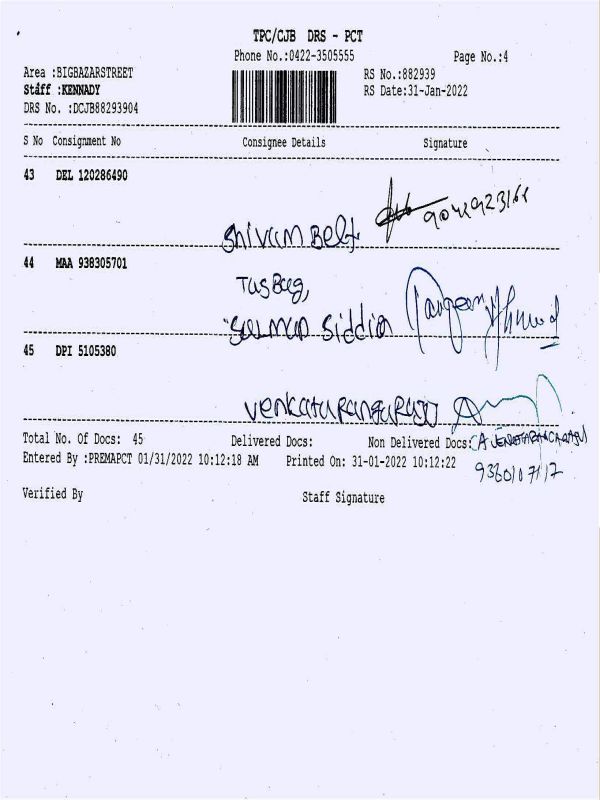 TPC/CJB DRS - PCT
Phone No.:0422-3505555 Page No.:4
Area :BIGBAZARSTREET RS No.:882939
Staff :KENNADY RS Date:31-Jan-2022
DRS No. :DCJB88293904
S No Consignment No Consignee Details Signature
43 DEL 120286490
Shivam Belt
44 MAA 938305701
Tas Bag,
Salman Siddiq
45 DPI 5105380
Venkatarangaraju
Total No. Of Docs: 45 Delivered Docs: Non Delivered Docs:
Entered By :PREMAPCT 01/31/2022 10:12:18 AM Printed On: 31-01-2022 10:12:22
9360107117
Verified By Staff Signature